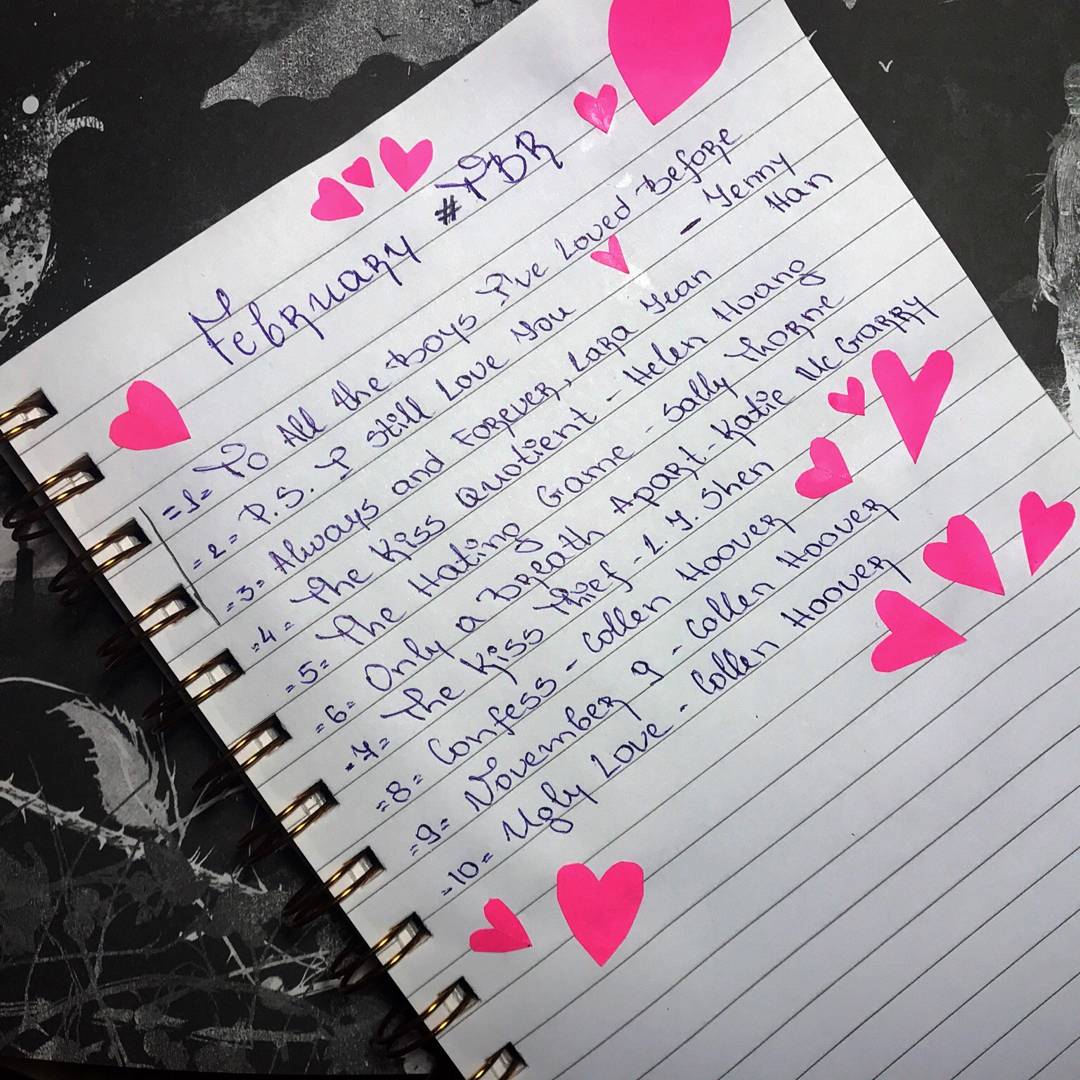 February #TBR
=1= To All the Boys I've Loved Before
=2= P.S. I Still Love You - Jenny Han
=3= Always and Forever, Lara Jean
=4= The Kiss Quotient - Helen Hoang
=5= The Hating Game - Sally Thorne
=6= Only a Breath Apart - Katie McGarry
=7= The Kiss Thief - L. J. Shen
=8= Confess - Collen Hoover
=9= November 9 - Collen Hoover
=10= Ugly Love - Collen Hoover